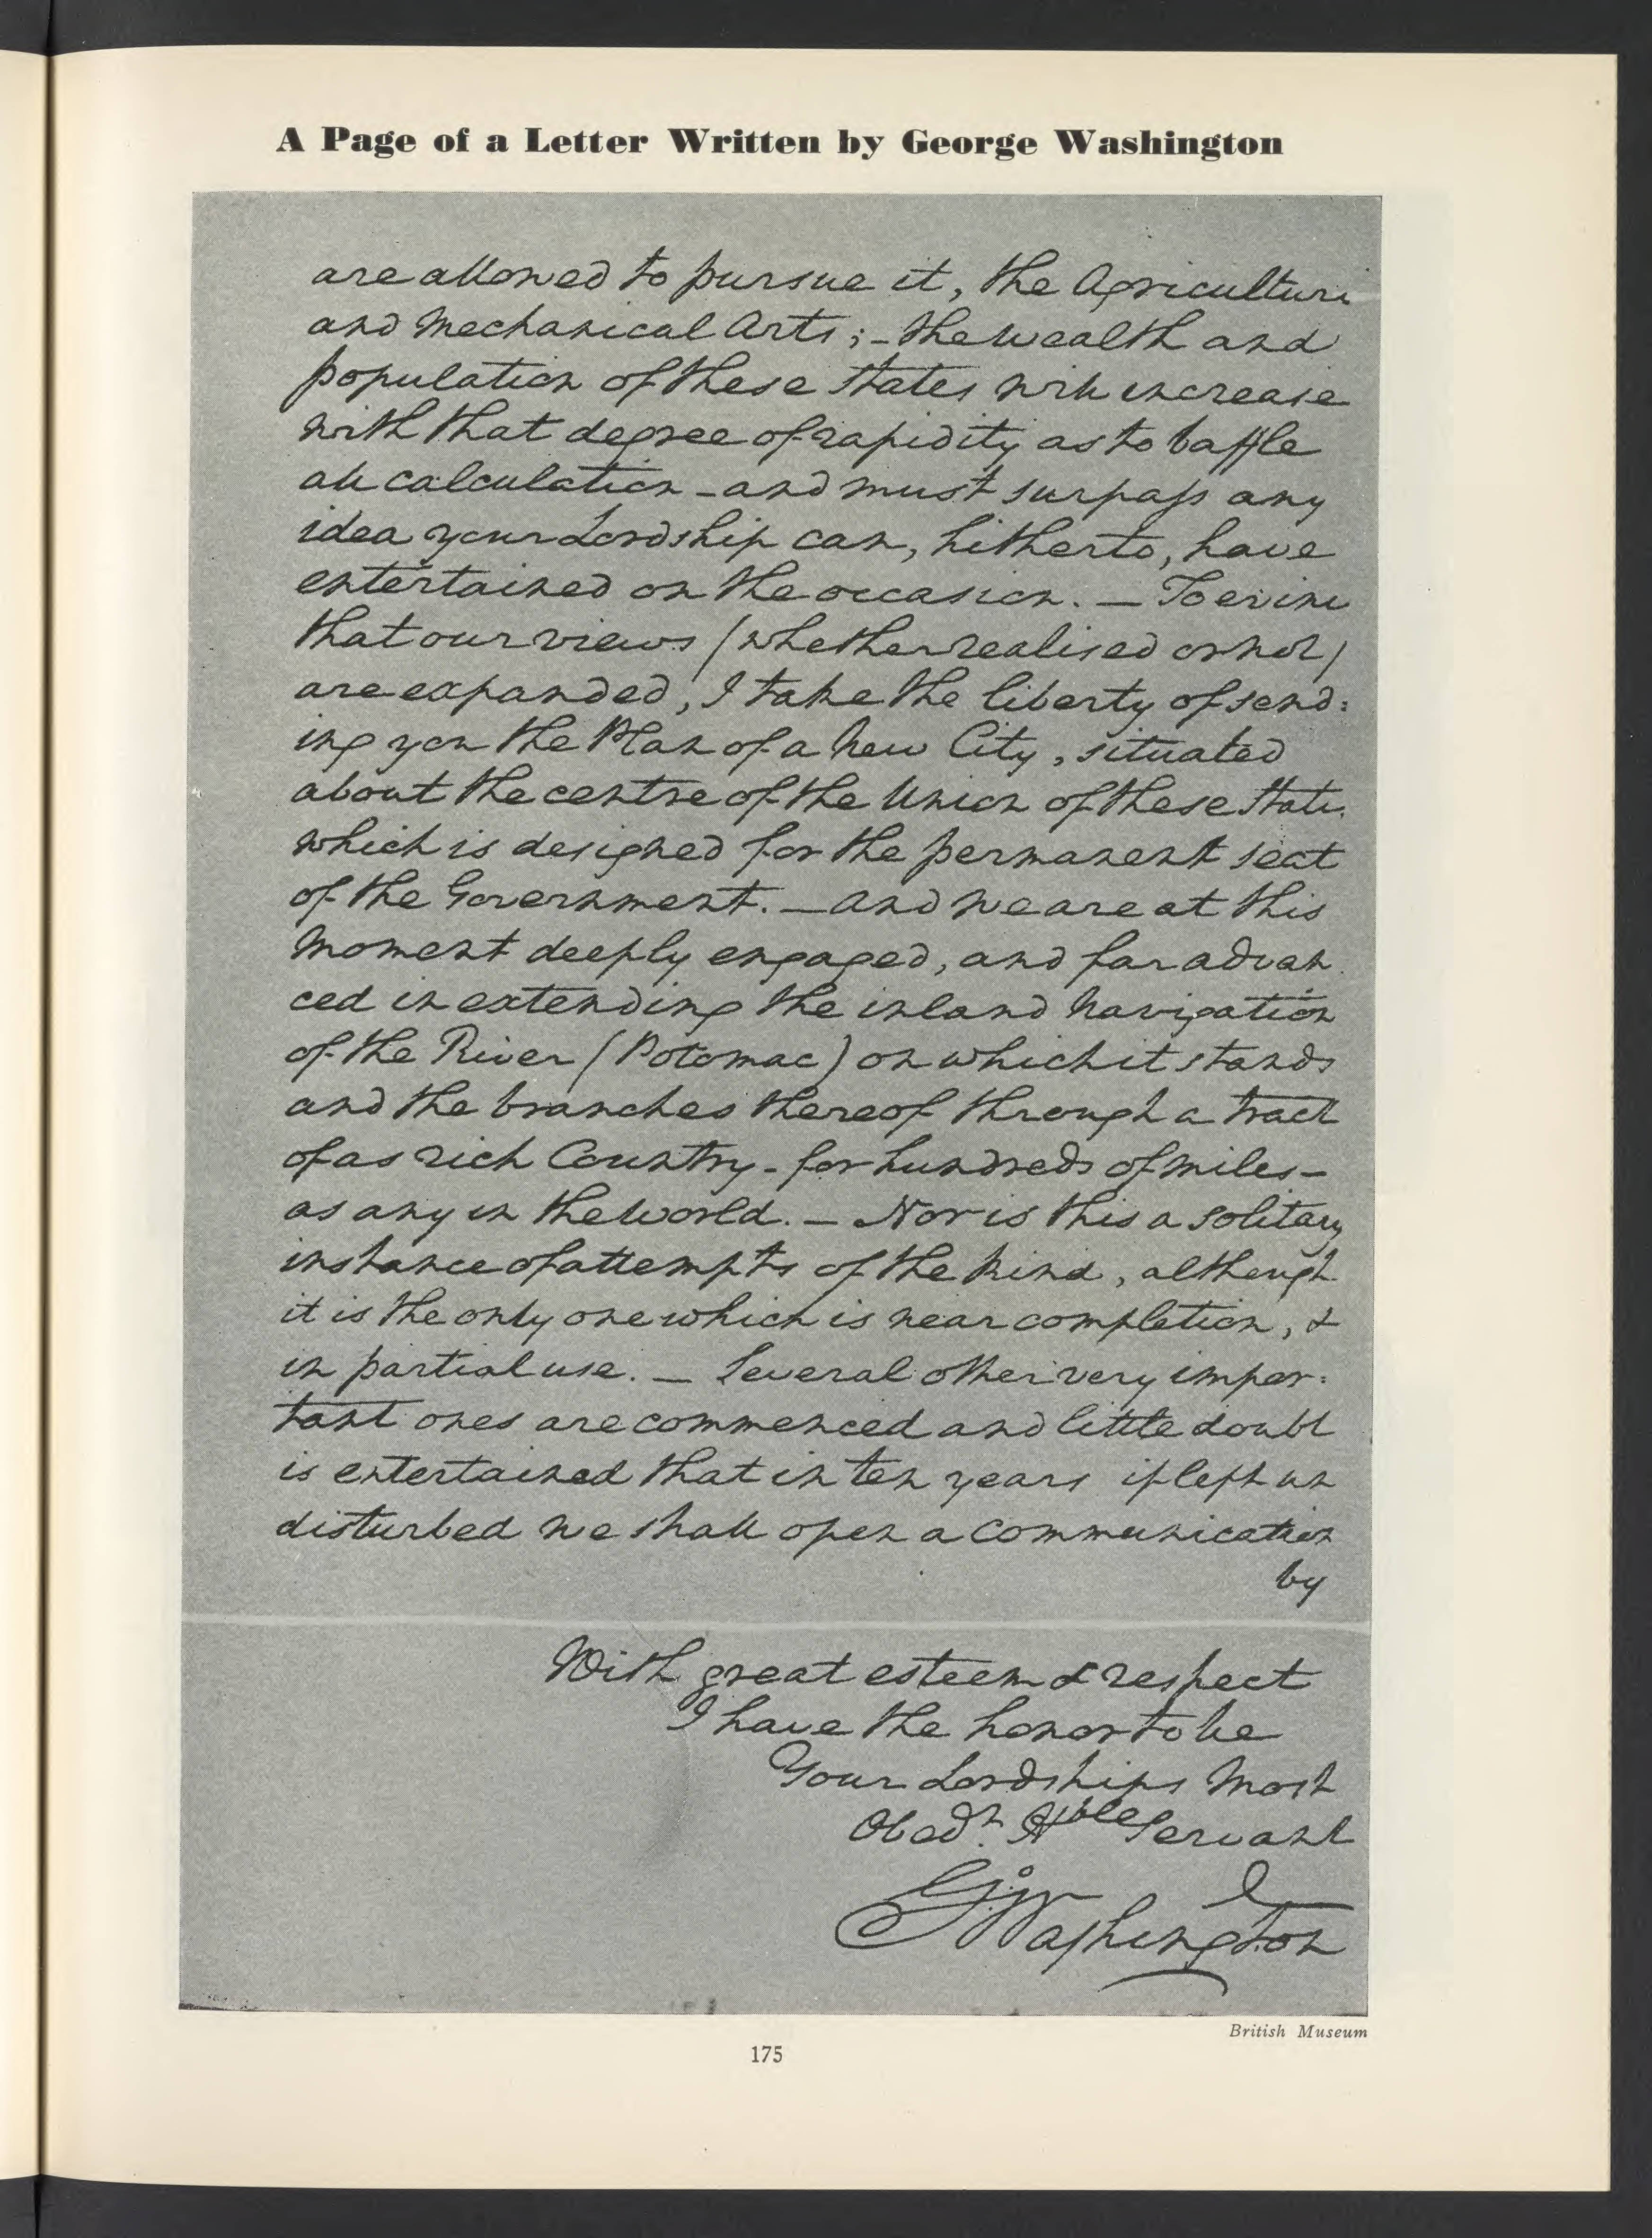 A Page of a Letter Written by George Washington
are allowed to pursue it, the Agriculture
and Mechanical Arts; – the wealth and
population of these States will increase
with that degree of rapidity as to baffle
all calculation – and must surpass any
idea your Lordship can, hitherto, have
entertained on the occasion. — To evince
that our views (whether realised or not)
are expanded, I take the liberty of send:
ing you the Plan of a New City, situated
about the centre of the Union of these States
which is designed for the permanent seat
of the Government. — and we are at this
moment deeply engaged, and far advan
ced in extending the inland navigation
of the River (Potomac) on which it stands
and the branches thereof through a tract
of as rich Country – for hundreds of miles –
as any in the world. — Nor is this a solitary
instance of attempts of the kind, although
it is the only one which is near completion, &
in partial use. — Several other very impor:
tant ones are commenced and little doubt
is entertained that in ten years if left un
disturbed we shall open a communication
by
With great esteem & respect
I have the honor to be
Your Lordships Most
Obedt. Hble Servant
Go: Washington
British Museum
175